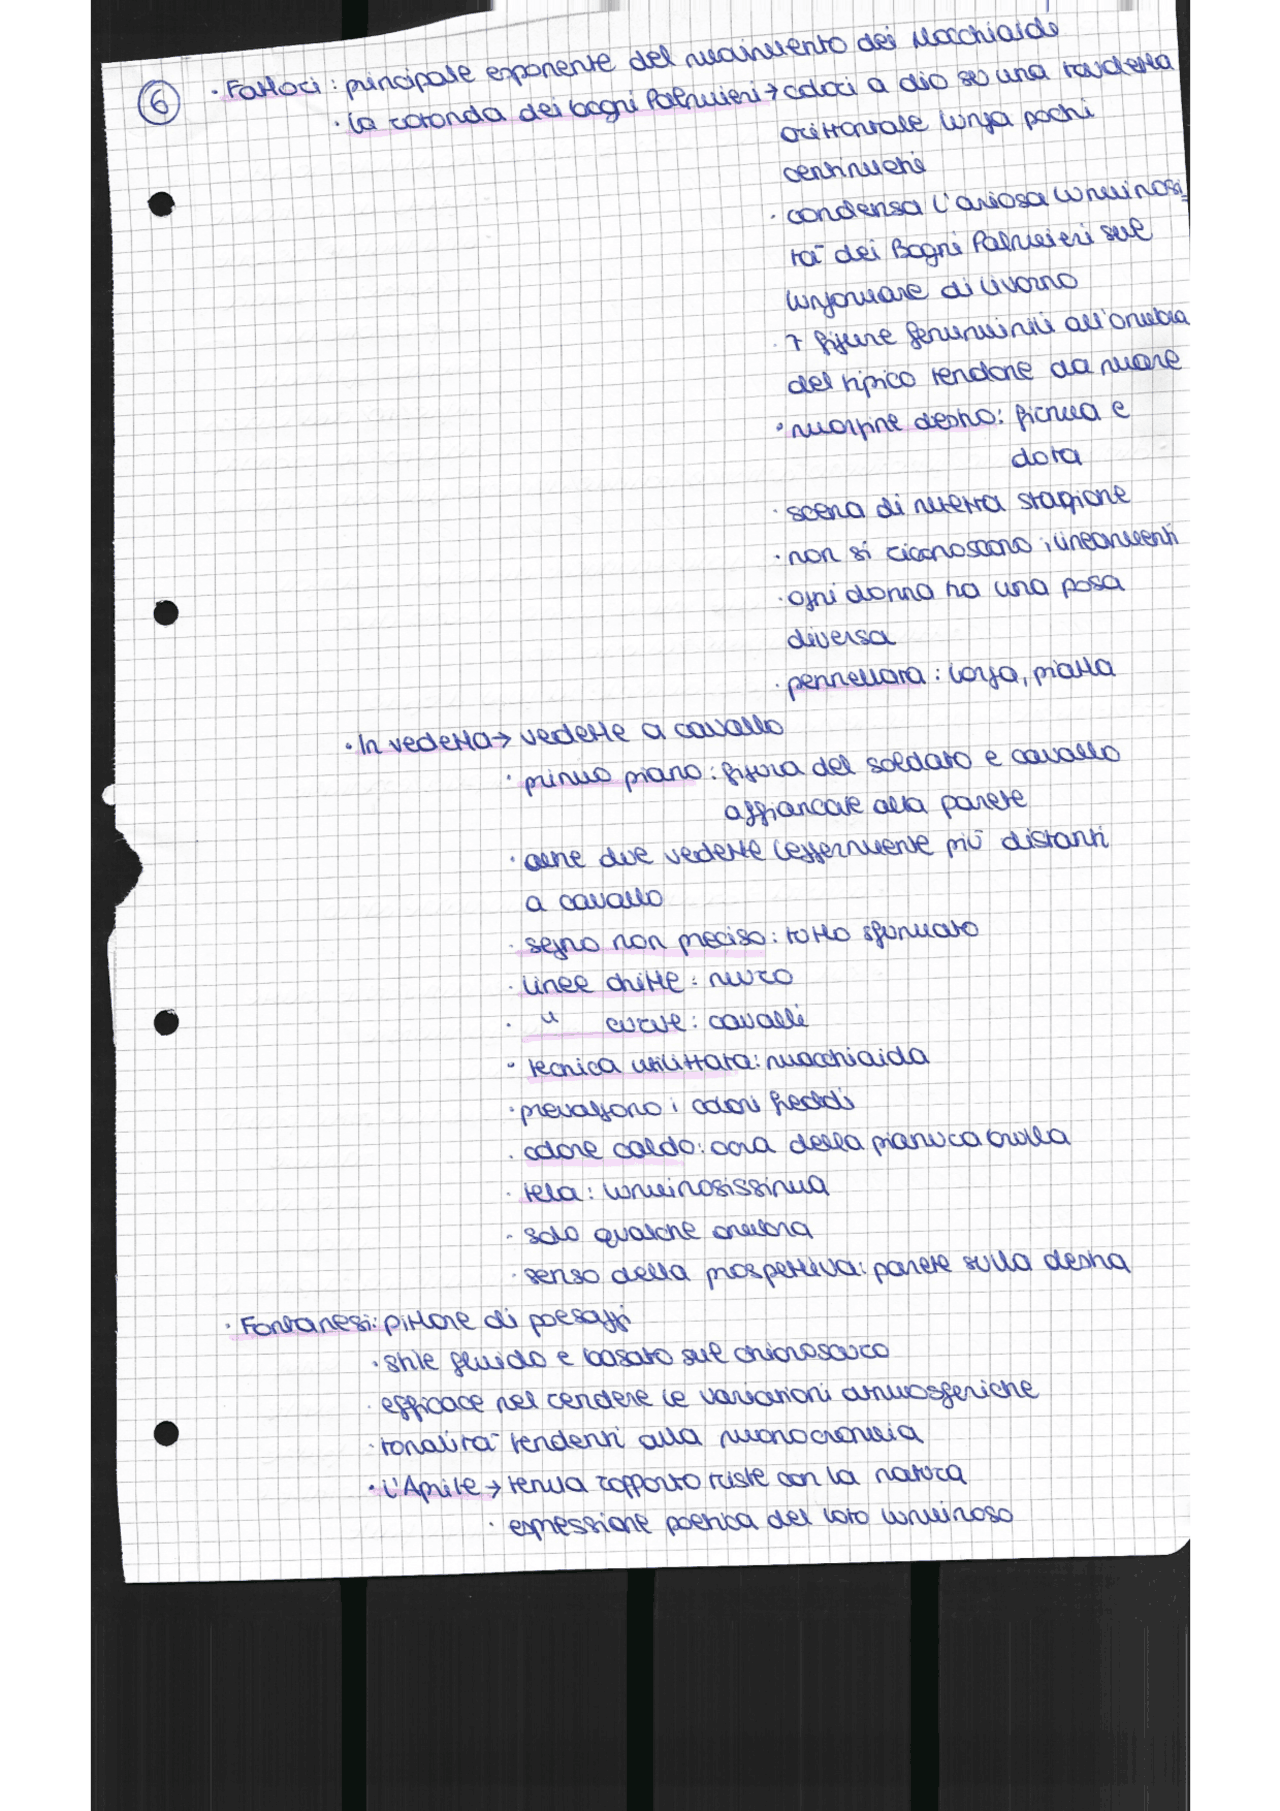 6
· Fattori: principale esponente del movimento dei Macchiaioli
· la rotonda dei bagni Palmieri → colori a olio su una tavoletta
orizzontale lunga pochi
centimetri
· condensa l'ariosa luminosi
tà dei Bagni Palmieri sul
lungomare di Livorno
· 7 figure femminili all'ombra
del tipico tendone da mare
· margine destro: firma e
data
· scena di mezza stagione
· non si riconoscono i lineamenti
· ogni donna ha una posa
diversa
· pennellata: larga, piatta
· In vedetta → vedette a cavallo
· primo piano: figura del soldato e cavallo
affiancate alla parete
· altre due vedette leggermente più distanti
a cavallo
· segno non preciso: tutto sfumato
· linee dritte: muro
· " curve: cavalli
· tecnica utilizzata: macchiaiola
· prevalgono i colori freddi
· colore caldo: ocra della pianura brulla
· tela: luminosissima
· solo qualche ombra
· senso della prospettiva: parete sulla destra
· Fontanesi: pittore di paesaggi
· stile fluido e basato sul chiaroscuro
· efficace nel rendere le variazioni atmosferiche
· tonalità tendenti alla monocromia
· l'Aprile → tenua rapporto triste con la natura
· espressione poetica del loto luminoso